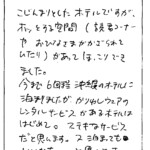 こじんまりとしたホテルですが、
ホッとする空間(読書コーナー
や おひなさまがかざられて
いたり)があって ほっこりでき
ました。
今まで6回程 沖縄のホテルに
泊りましたが かりゆしウェアの
レンタルサービスがあるホテルは
はじめて。 ステキなサービス
だと思います。 2泊までも